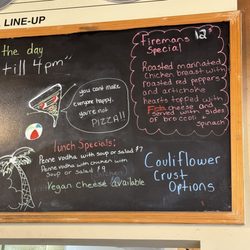 LINE-UP
the day
till 4pm"
you cant make
everyone happy,
you're not
PIZZA!!
Lunch Specials:
Penne vodka with soup or salad $7
Penne vodka with chicken with
Soup or Salad $9
Vegan Cheese available
Firemans 12"
Special
Roasted marinated
chicken breast with
roasted red peppers
and artichoke
hearts topped with
Feta cheese and
served with sides
of broccoli +
spinach
Cauliflower
Crust
Options